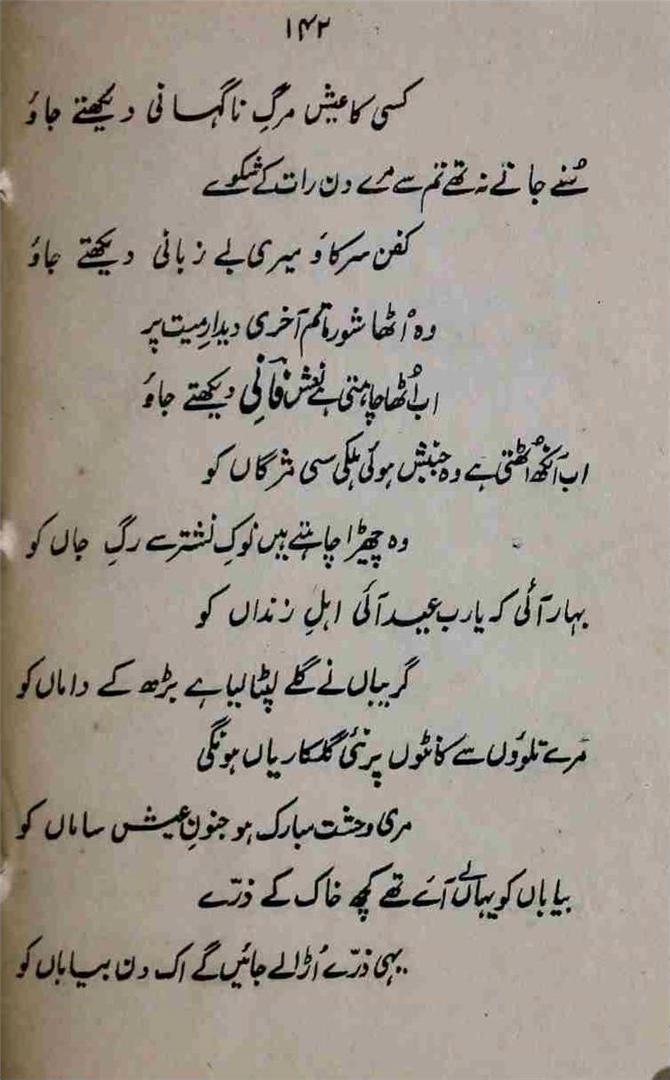 ۱۴۲
کسی کا عیش مرگِ ناگہانی دیکھتے جاؤ
سُنے جاتے نہ تھے تم سے مرے دن رات کے شکوے
کفن سرکاؤ میری بے زبانی دیکھتے جاؤ
وہ اُٹھا شورِ ماتم آخری دیدارِ میت پر
اب اُٹھا چاہتی ہے نعش فانی دیکھتے جاؤ
اب آنکھ اُٹھتی ہے وہ جنبش ہوئی ہلکی سی مژگاں کو
وہ چھیڑا چاہتے ہیں نوکِ نشتر سے رگِ جاں کو
بہار آئی کہ یارب عید آئی اہلِ زنداں کو
گریباں نے گلے لپٹا لیا ہے بڑھ کے داماں کو
مرے تلوؤں سے کانٹوں پر نئی گلکاریاں ہونگی
مری وحشت مبارک ہو جنونِ عیش ساماں کو
بیاباں کو یہاں لے آئے تھے کچھ خاک کے ذرّے
یہی ذرّے اُڑا لے جائیں گے اک دن بیاباں کو